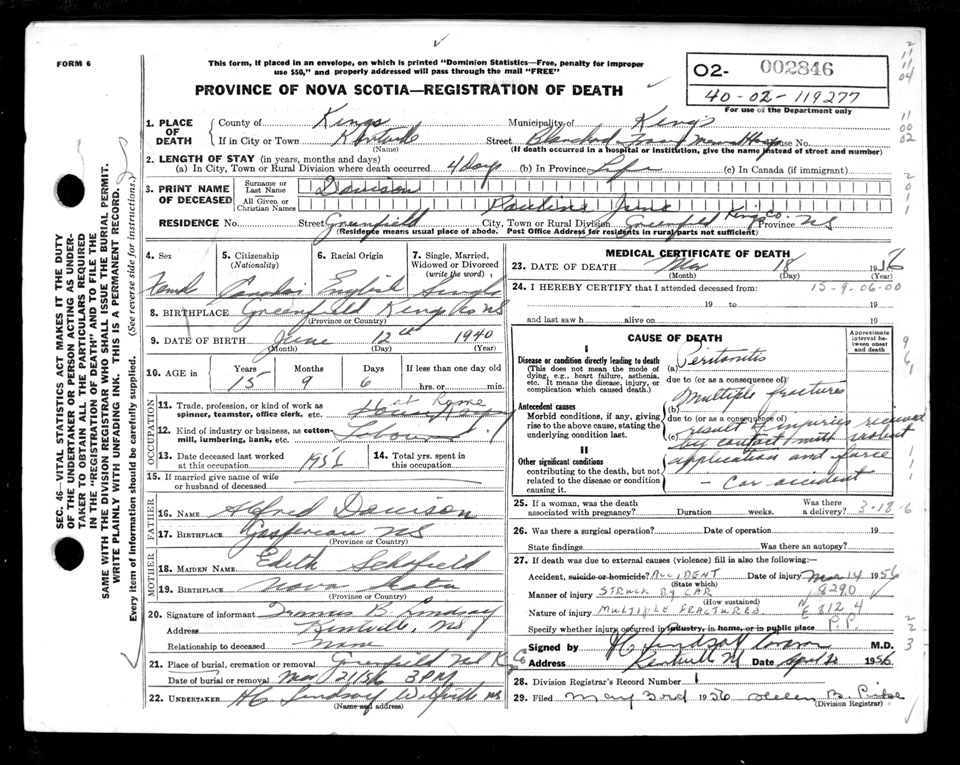 FORM 6
This form, if placed in an envelope, on which is printed "Dominion Statistics—Free, penalty for improper
use $50," and properly addressed will pass through the mail "FREE"
02- 002846
40-02-119277
For use of the Department only
PROVINCE OF NOVA SCOTIA—REGISTRATION OF DEATH
SEC. 46— VITAL STATISTICS ACT MAKES IT THE DUTY
OF THE UNDERTAKER OR PERSON ACTING AS UNDER-
TAKER TO OBTAIN ALL THE PARTICULARS REQUIRED
IN THE "REGISTRATION OF DEATH" AND TO FILE THE
SAME WITH THE DIVISION REGISTRAR WHO SHALL ISSUE THE BURIAL PERMIT.
WRITE PLAINLY WITH UNFADING INK. THIS IS A PERMANENT RECORD.
Every item of Information should be carefully supplied. (See reverse side for instructions.)
1. PLACE OF DEATH
County of Kings Municipality of Kings
If in City or Town Kentville Street Blanchard
(Name) (If death occurred in a hospital or institution, give the name instead of street and number)
2. LENGTH OF STAY (in years, months and days)
(a) In City, Town or Rural Division where death occurred 4 Days (b) In Province Life (c) In Canada (if immigrant)
3. PRINT NAME OF DECEASED
Surname or Last Name Davison
All Given or Christian Names Pauline June
RESIDENCE No. Street Greenfield City, Town or Rural Division Greenfield Kings Co. Province NS
(Residence means usual place of abode. Post Office Address for residents in rural parts not sufficient)
4. Sex 5. Citizenship (Nationality) 6. Racial Origin 7. Single, Married, Widowed or Divorced (write the word)
Female Canadian English Single
8. BIRTHPLACE Greenfield Kings Co NS
(Province or Country)
9. DATE OF BIRTH June 12th 1940
(Month) (Day) (Year)
10. AGE Years Months Days If less than one day old
15 9 6 hrs. or min.
OCCUPATION
11. Trade, profession, or kind of work as
spinner, teamster, office clerk, etc. at Home
12. Kind of industry or business, as cotton-
mill, lumbering, bank, etc.
13. Date deceased last worked
at this occupation 1956
14. Total yrs. spent in
this occupation
15. If married give name of wife
or husband of deceased
FATHER
16. NAME Alfred Davison
17. BIRTHPLACE Gaspereau NS
(Province or Country)
MOTHER
18. MAIDEN NAME Edith Schofield
19. BIRTHPLACE Nova Scotia
(Province or Country)
20. Signature of informant Francis B. Lindsay
Address Kentville, NS
Relationship to deceased None
21. Place of burial, cremation or removal Greenfield
Date of burial or removal Mar 21/56 3 PM
22. UNDERTAKER HC Lindsay Wolfville NS
(Name and address)
MEDICAL CERTIFICATE OF DEATH
23. DATE OF DEATH Mar 18 1956
(Month) (Day) (Year)
24. I HEREBY CERTIFY that I attended deceased from: 15-9-06-00
19 to 19
and last saw h alive on 19
CAUSE OF DEATH
Approximate interval between onset and death
I
Disease or condition directly leading to death
(This does not mean the mode of
dying, e.g., heart failure, asthenia,
etc. It means the disease, injury, or
complication which caused death.)
(a) Peritonitis
due to (or as a consequence of)
(b) Multiple fractures
Antecedent causes
Morbid conditions, if any, giving
rise to the above cause, stating the
underlying condition last.
due to (or as a consequence of)
(c) result of injuries received
by contact with violent
application and force
- Car accident
II
Other significant conditions
contributing to the death, but not
related to the disease or condition
causing it.
25. If a woman, was the death
associated with pregnancy? Duration weeks. Was there a delivery? 3-18-6
26. Was there a surgical operation? Date of operation 19
State findings Was there an autopsy?
27. If death was due to external causes (violence) fill in also the following:
Accident, suicide or homicide? ACCIDENT Date of injury Mar 14 1956
(State which)
Manner of injury STRUCK BY CAR 8290
(How sustained)
Nature of injury MULTIPLE FRACTURES E 812.4
Specify whether injury occurred in industry, in home, or in public place P.P.
Signed by M.D.
Address Kentville NS Date April 1956
28. Division Registrar's Record Number 1
29. Filed May 3rd 1956 Helen B.
(Division Registrar)